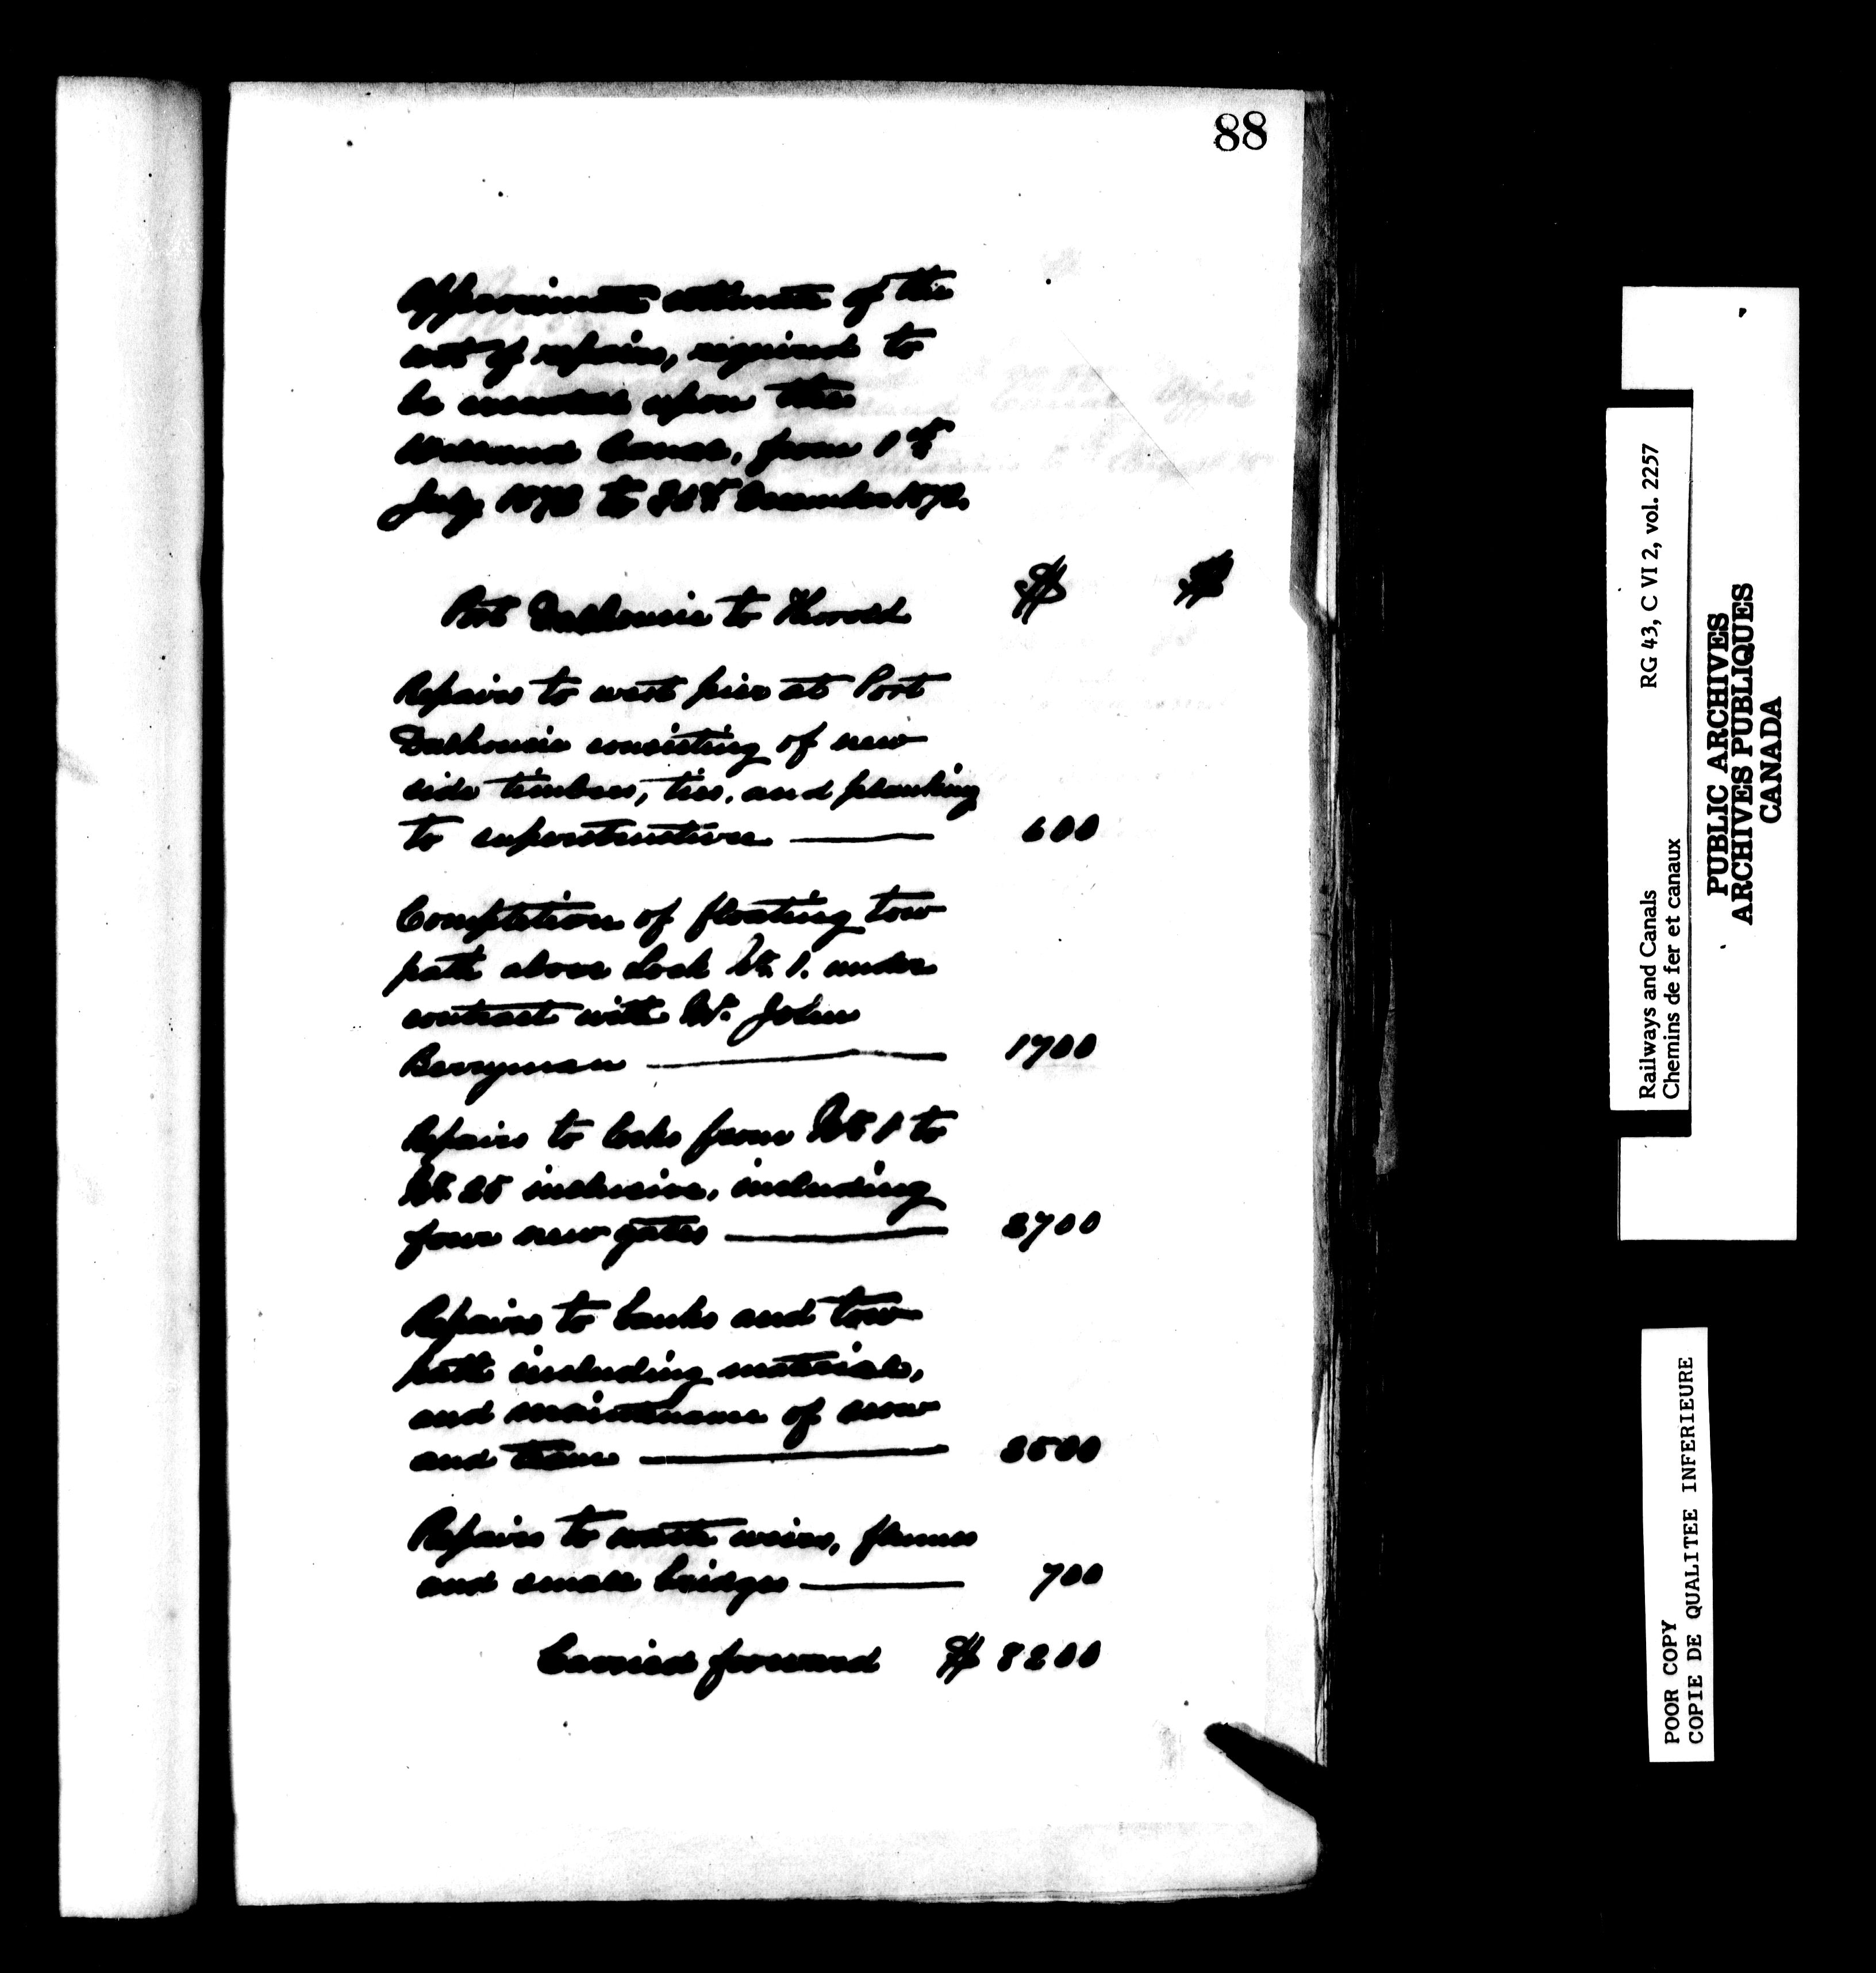 88
Approximate estimate of the
cost of repairs, required to
be executed upon the
Welland Canal, from 1st
July 1872 to 31st December 1872.
$ $
Port Dalhousie to Thorold
Repairs to west pier at Port
Dalhousie consisting of new
side timbers, ties, and planking
to superstructure — 600
Completion of floating tow
path above Lock No. 1. under
contract with Mr. John
Berryman — 1700
Repairs to locks from No 1 to
No. 25 inclusive, including
four new gates — 2700
Repairs to banks and tow
path including materials,
and maintenance of scow
and teams — 2500
Repairs to waste weirs, flumes
and small bridges — 700
Carried forward $ 8200
Railways and Canals RG 43, C VI 2, vol. 2257
Chemins de fer et canaux
PUBLIC ARCHIVES
ARCHIVES PUBLIQUES
CANADA
POOR COPY
COPIE DE QUALITEE INFERIEURE